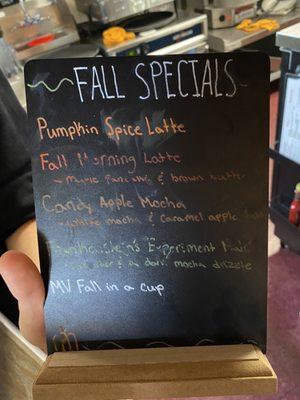 FALL SPECIALS
Pumpkin Spice Latte
Fall Morning Latte
- Maple pancake & brown butter
Candy Apple Mocha
- White mocha & caramel apple
Frankenstein's Experiment
& dark mocha drizzle
MV Fall in a cup